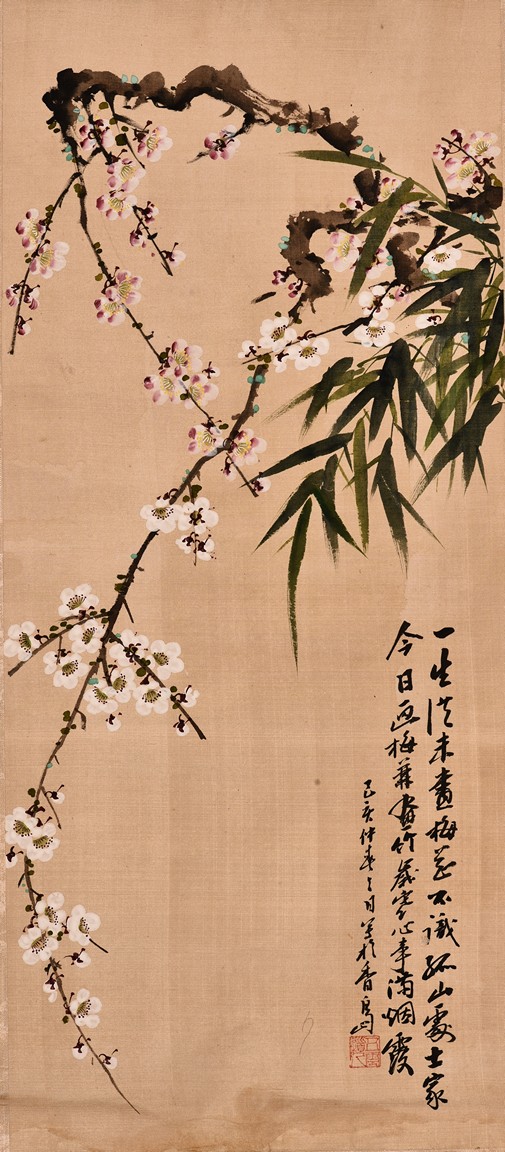 一生從未畫梅花不識孤山處士家
今日画梅兼畫竹歲寒心事滿烟霞
己亥仲春之月写於香島